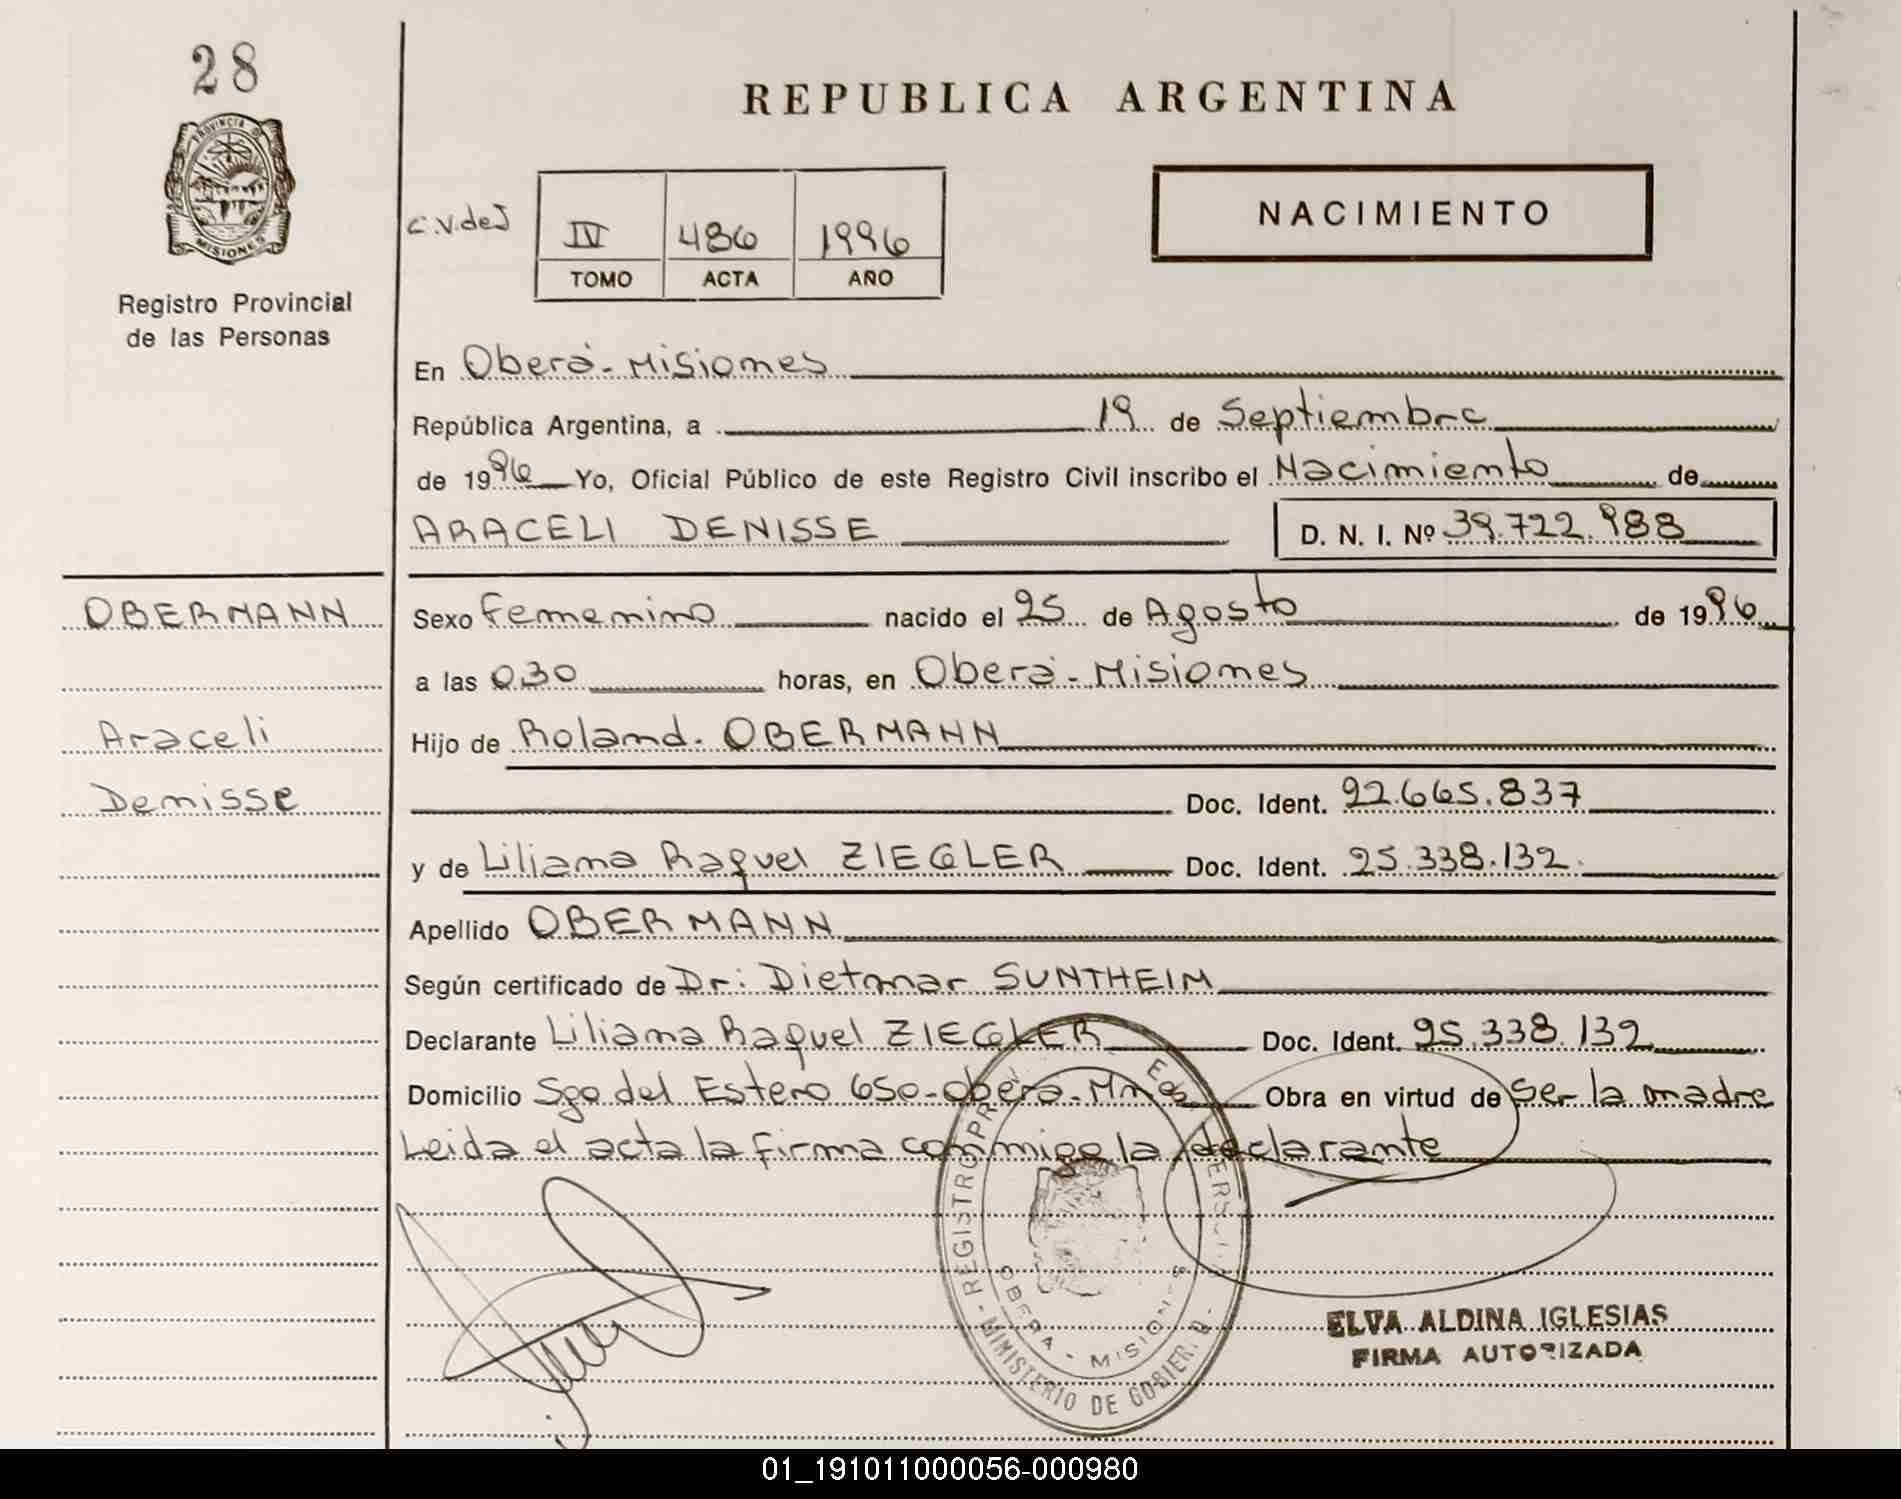 28
PROVINCIA DE
MISIONES
Registro Provincial
de las Personas
REPUBLICA ARGENTINA
C.V.deJ
IV 486 1996
TOMO ACTA AÑO
NACIMIENTO
En Oberá - Misiones
República Argentina, a 19 de Septiembre
de 1996 Yo, Oficial Público de este Registro Civil inscribo el Nacimiento de
ARACELI DENISSE D. N. I. Nº 39.722.988
OBERMANN
Araceli
Denisse
Sexo Femenino nacido el 25 de Agosto de 1996
a las 030 horas, en Oberá - Misiones
Hijo de Roland. OBERMANN
Doc. Ident. 22.665.837
y de Liliana Raquel ZIEGLER Doc. Ident. 25.338.132.
Apellido OBERMANN
Según certificado de Dr: Dietmar SUNTHEIM
Declarante Liliana Raquel ZIEGLER Doc. Ident. 25.338.132
Domicilio Sgo del Estero 650 - Oberá - Mnes Obra en virtud de ser la madre
Leida el acta la firma conmigo la declarante
OBERA - MISIONES
MINISTERIO DE GOBIERNO
ELVA ALDINA IGLESIAS
FIRMA AUTORIZADA
01_191011000056-000980